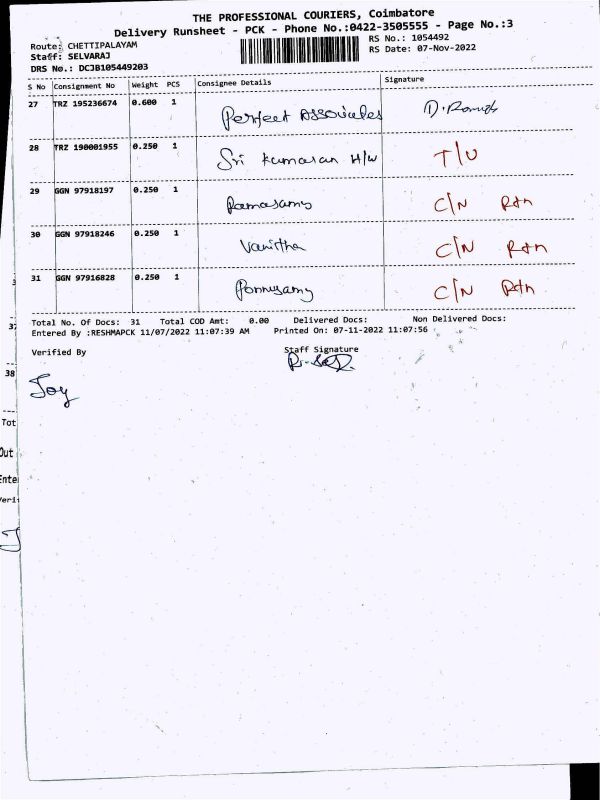 THE PROFESSIONAL COURIERS, Coimbatore
Delivery Runsheet - PCK - Phone No.:0422-3505555 - Page No.:3
Route: CHETTIPALAYAM RS No.: 1054492
Staff: SELVARAJ RS Date: 07-Nov-2022
DRS No.: DCJB105449203
S No Consignment No Weight PCS Consignee Details Signature
27 TRZ 195236674 0.600 1 Perfect Associates
28 TRZ 190001955 0.250 1 Sri Kumaran H/W T/U
29 GGN 97918197 0.250 1 Ramasamy C/N Rtn
30 GGN 97918246 0.250 1 Vanitha C/N Rtn
31 GGN 97916828 0.250 1 Ponnusamy C/N Rtn
Total No. Of Docs: 31 Total COD Amt: 0.00 Delivered Docs: Non Delivered Docs:
Entered By :RESHMAPCK 11/07/2022 11:07:39 AM Printed On: 07-11-2022 11:07:56
Verified By Staff Signature
Joy
38
Tot
Out